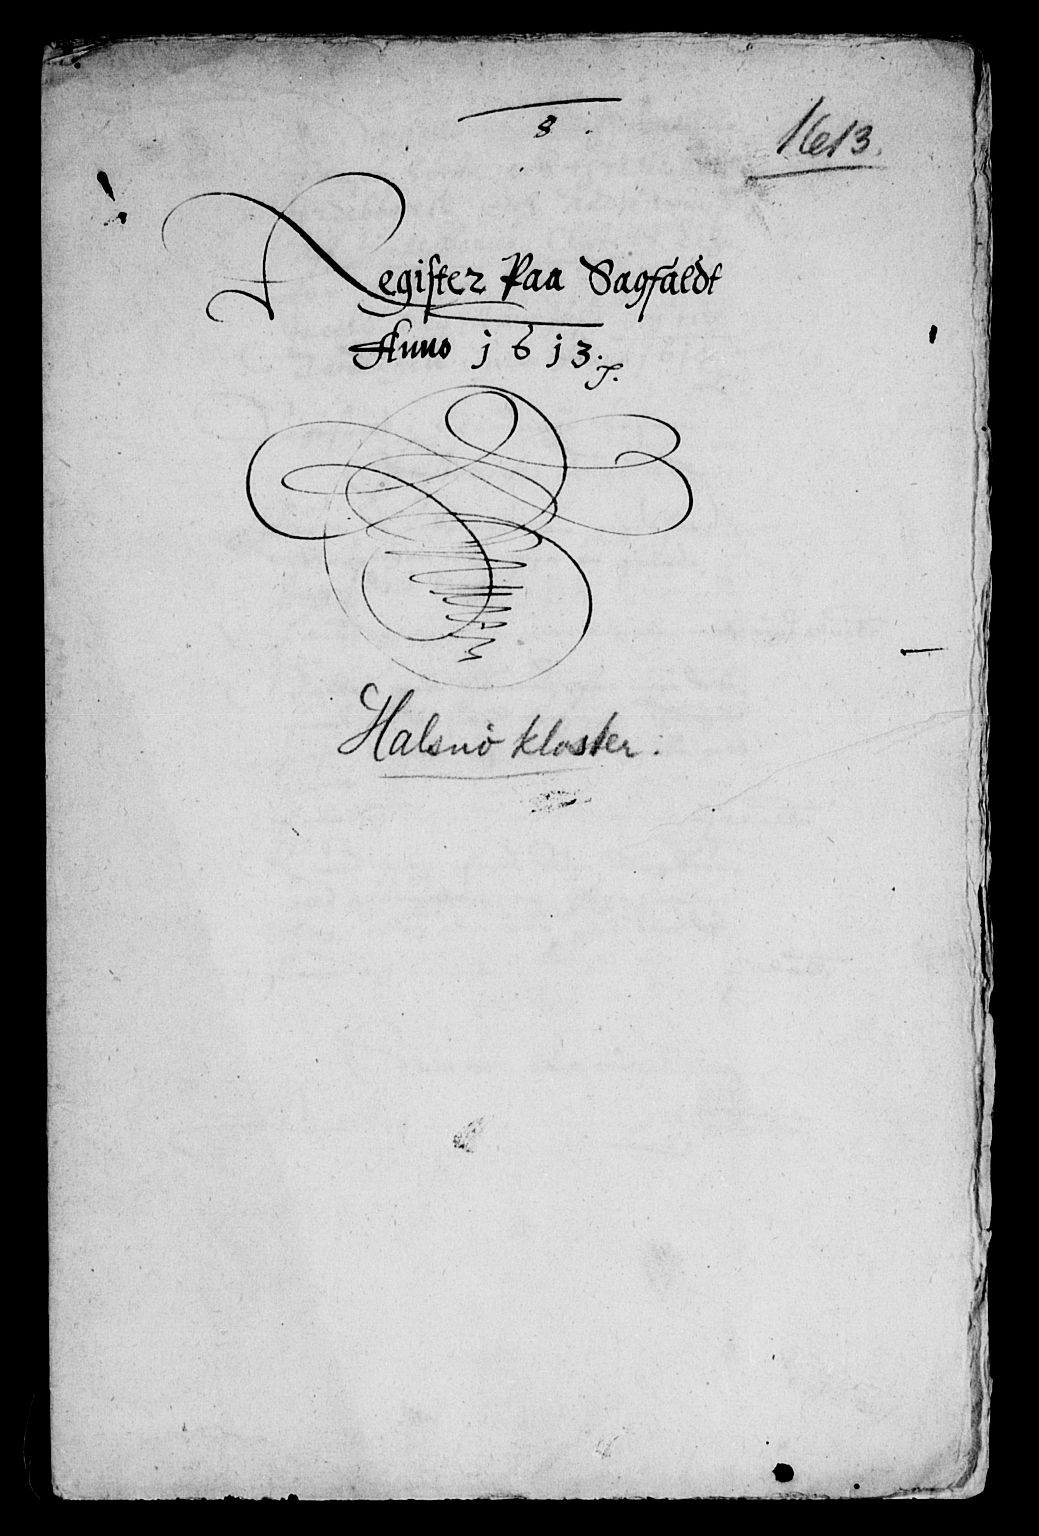 8.
1613.
Register Paa Sagfaldt
Anno 1613.
Halsnö kloster.